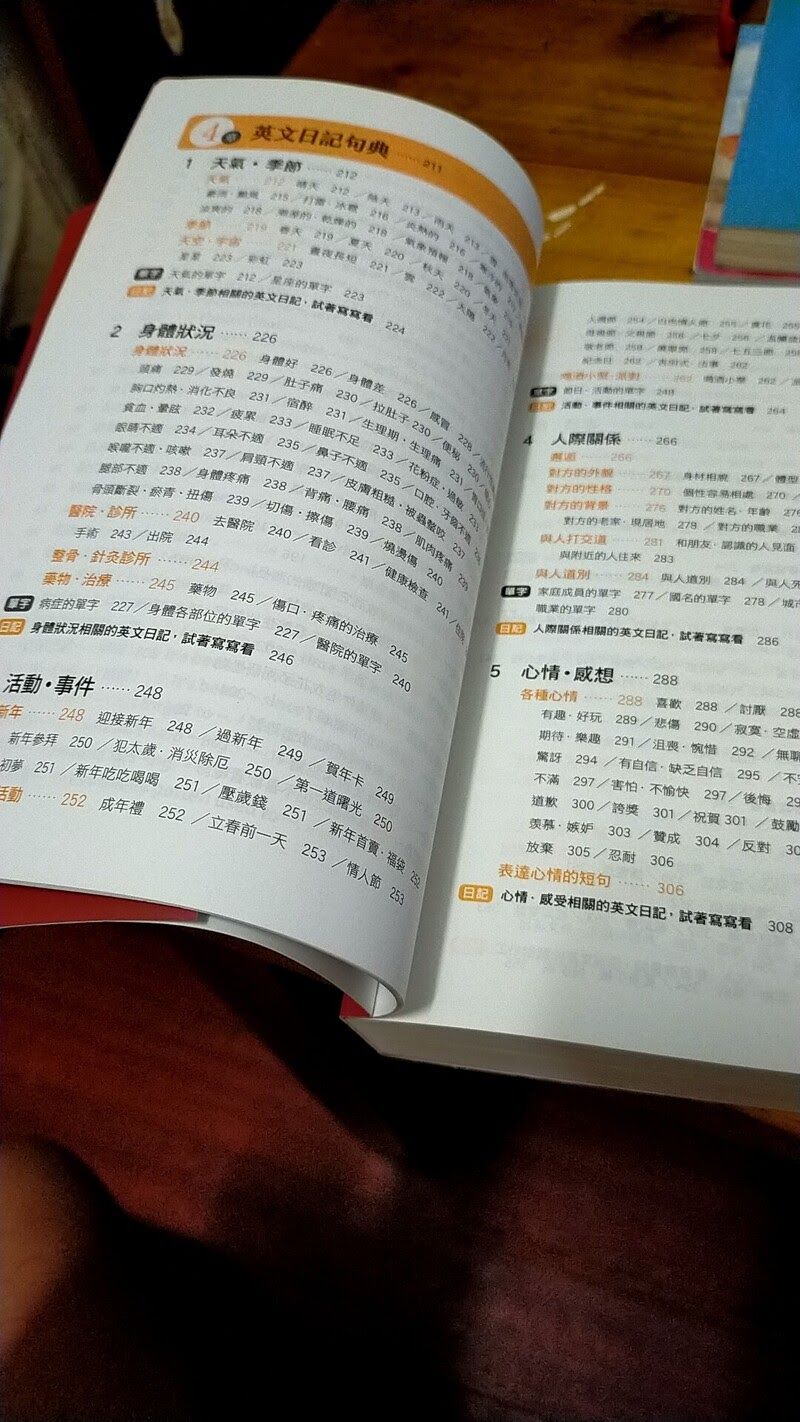 4 章 英文日記句典 …… 211
1 天氣・季節 …… 212
天氣 …… 212 晴天 212 ／陰天 213 ／雨天 213
豪雨・颱風 215 ／打雷・冰雹 216 ／炎熱的 216
218 ／潮溼的・乾燥的 218 ／氣象預報 218
季節 …… 219 春天 219 ／夏天 220 ／秋天 220 ／冬天
天空・宇宙 …… 221 晝夜長短 221 ／雲 222 ／太陽 222
星星 223 ／彩虹 223
單字 天氣的單字 212 ／星座的單字 223
日記 天氣・季節相關的英文日記，試著寫寫看 224
2 身體狀況 …… 226
身體狀況 …… 226 身體好 226 ／身體差 226 ／感冒 228
頭痛 229 ／發燒 229 ／肚子痛 230 ／拉肚子 230 ／便秘
胸口灼熱・消化不良 231 ／宿醉 231 ／生理期・生理痛 231
貧血・暈眩 232 ／疲累 233 ／睡眠不足 233 ／花粉症・過敏
眼睛不適 234 ／耳朵不適 235 ／鼻子不適 235 ／口腔・牙齒不適
喉嚨不適・咳嗽 237 ／肩頸不適 237 ／皮膚粗糙・被蟲螫咬 237
腿部不適 238 ／身體疼痛 238 ／背痛・腰痛 238 ／肌肉疼痛 239
骨頭斷裂・瘀青・扭傷 239 ／切傷・擦傷 239 ／燒燙傷 240
醫院・診所 …… 240 去醫院 240 ／看診 241 ／健康檢查 241
手術 243 ／出院 244
整骨・針灸診所 …… 244
藥物・治療 …… 245 藥物 245 ／傷口・疼痛的治療 245
單字 病症的單字 227 ／身體各部位的單字 227 ／醫院的單字 240
日記 身體狀況相關的英文日記，試著寫寫看 246
活動・事件 …… 248
新年 …… 248 迎接新年 248 ／過新年 249 ／賀年卡 249
新年參拜 250 ／犯太歲・消災除厄 250 ／第一道曙光 250
初夢 251 ／新年吃吃喝喝 251 ／壓歲錢 251 ／新年首賣・福袋 252
活動 …… 252 成年禮 252 ／立春前一天 253 ／情人節 253
254 ／白色情人節 255 ／賞花 255
母親節・父親節 256 ／七夕 256
敬老節 258 ／萬聖節 258 ／七五三節
紀念日 262 262
喝酒小聚・派對 …… 262 喝酒小聚 262
單字 節日・活動的單字 248
日記 活動・事件相關的英文日記，試著寫寫看 264
4 人際關係 …… 266
邂逅 …… 266
對方的外貌 …… 267 身材相貌 267 ／體型
對方的性格 …… 270 個性容易相處 270 ／
對方的背景 …… 276 對方的姓名・年齡 276
對方的老家・現居地 278 ／對方的職業
與人打交道 …… 281 和朋友・認識的人見面
與附近的人往來 283
與人道別 …… 284 與人道別 284 ／與人
單字 家庭成員的單字 277 ／國名的單字 278
職業的單字 280
日記 人際關係相關的英文日記，試著寫寫看 286
5 心情・感想 …… 288
各種心情 …… 288 喜歡 288 ／討厭 288
有趣・好玩 289 ／悲傷 290 ／寂寞・空虛
期待・樂趣 291 ／沮喪・惋惜 292 ／無聊
驚訝 294 ／有自信・缺乏自信 295 ／不
不滿 297 ／害怕・不愉快 297 ／後悔
道歉 300 ／誇獎 301 ／祝賀 301 ／鼓勵
羨慕・嫉妒 303 ／贊成 304 ／反對
放棄 305 ／忍耐 306
表達心情的短句 …… 306
日記 心情・感受相關的英文日記，試著寫寫看 308